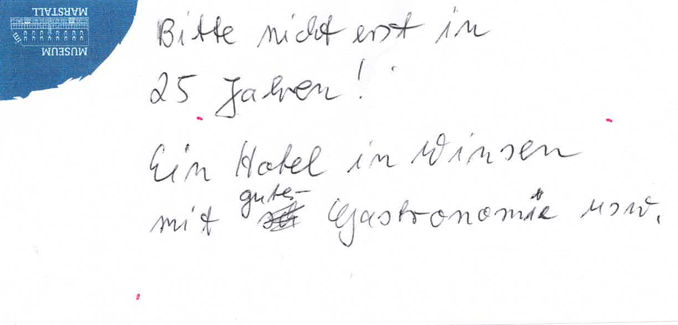 MUSEUM
MARSTALL
Bitte nicht erst in
25 Jahren!
Ein Hotel in Winsen
mit guter Gastronomie usw.